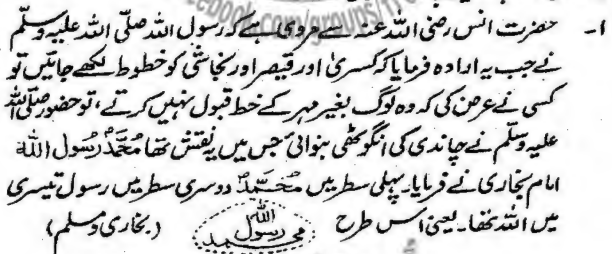 ۱۔ حضرت انس رضی اللہ عنہ سے مروی ہے کہ رسول اللہ صلی اللہ علیہ وسلم
نے جب یہ ارادہ فرمایا کہ کسریٰ اور قیصر اور نجاشی کو خطوط لکھے جائیں تو
کسی نے عرض کی کہ وہ لوگ بغیر مہر کے خط قبول نہیں کرتے، تو حضور صلی اللہ
علیہ وسلم نے چاندی کی انگوٹھی بنوائی جس میں یہ نقش تھا مُحَمَّدٌ رَّسُولُ اللہ
امام بخاری نے فرمایا۔ پہلی سطر میں مُحَمَّدٌ دوسری سطر میں رسول تیسری
میں اللہ تھا۔ یعنی اس طرح اللہ رسول محمد (بخاری و مسلم)